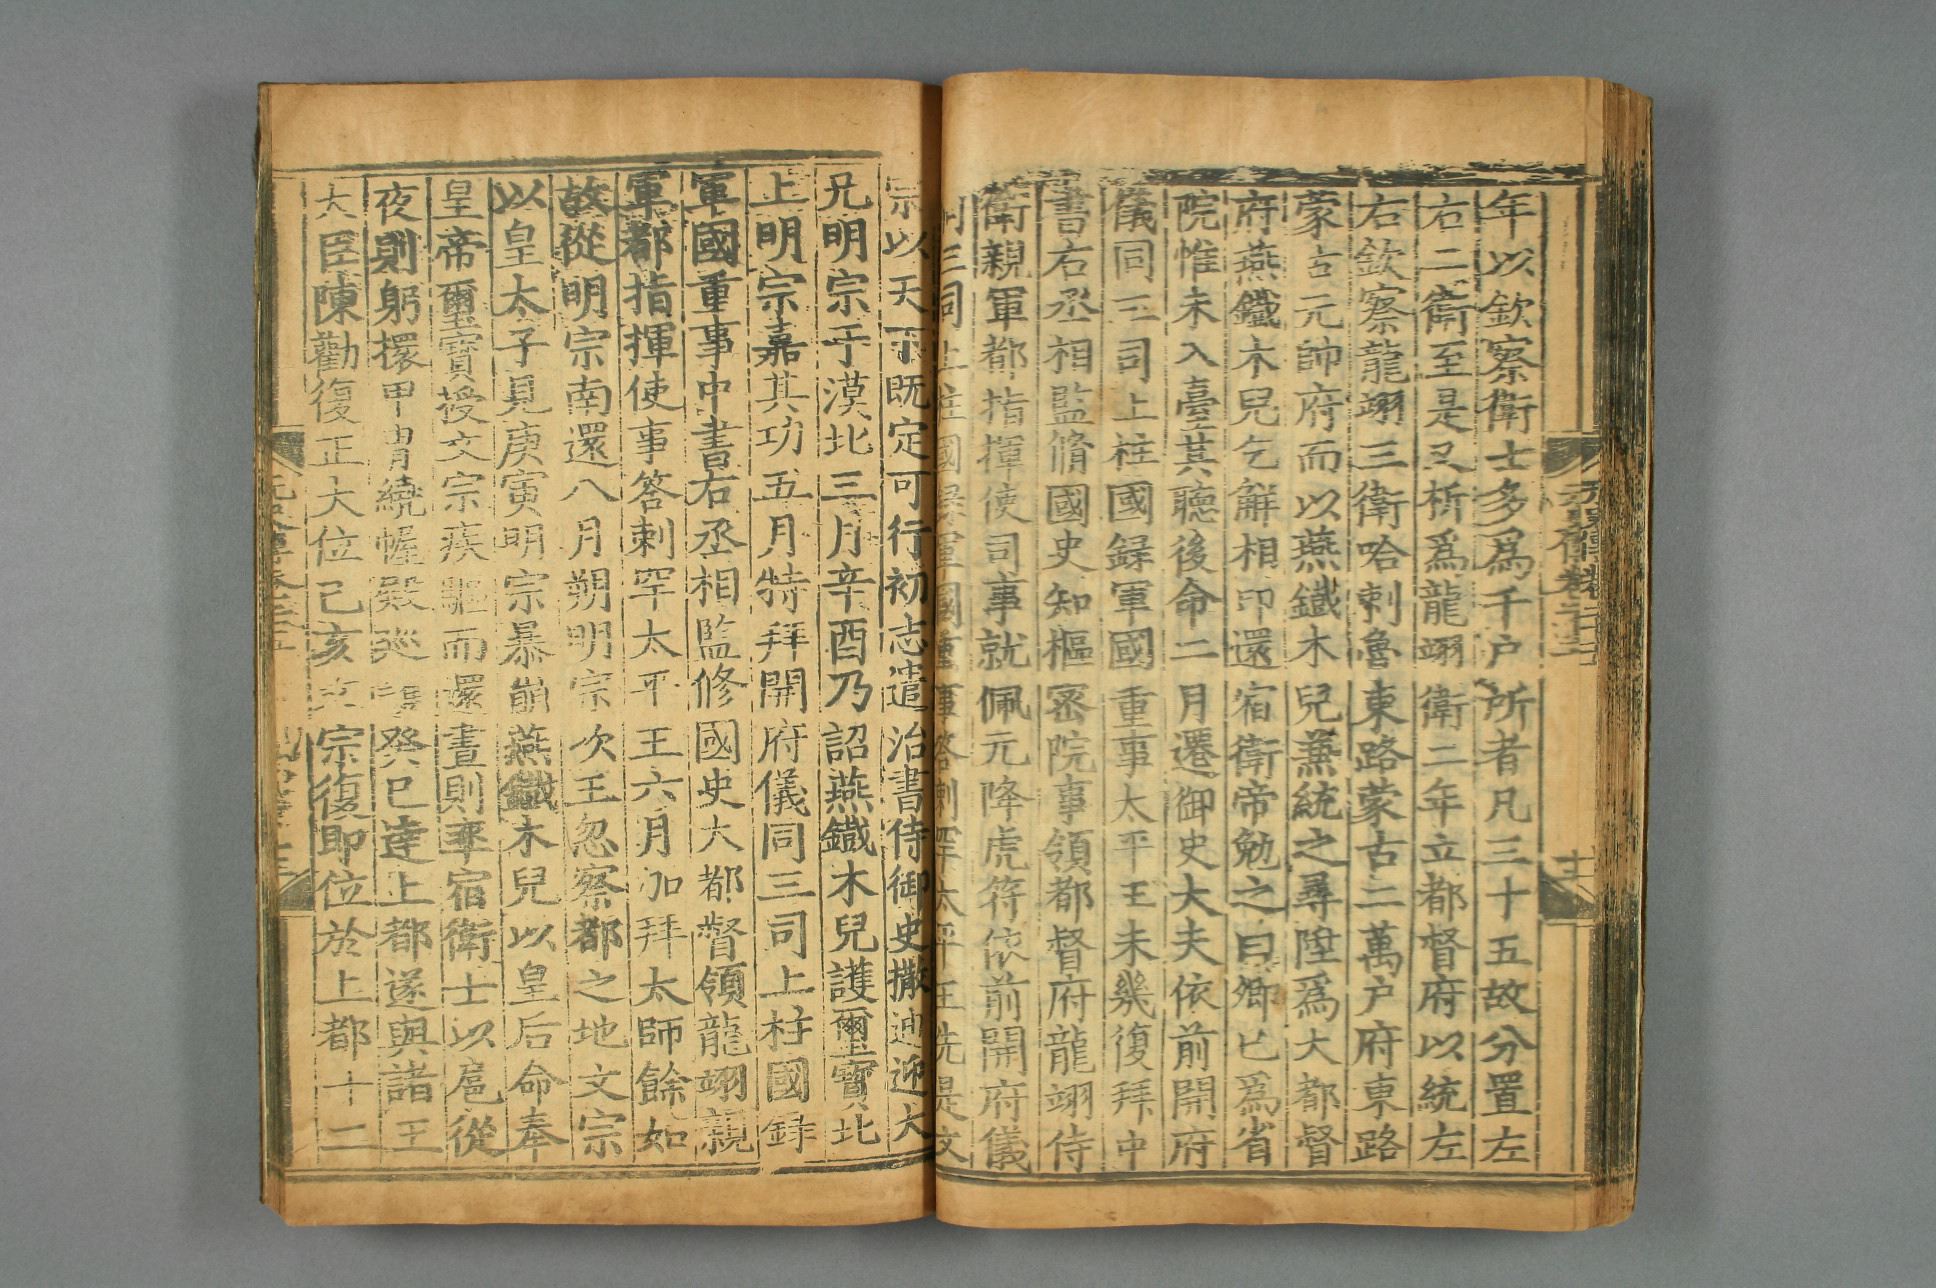 年以欽察衛士多爲千戶所者凡三十五故分置左
右二衛至是又析爲龍翊衛二年立都督府以統左
右欽察龍翊三衛哈剌魯東路蒙古二萬戶府東路
蒙古元帥府而以燕鐵木兒兼統之尋陞爲大都督
府燕鐵木兒乞解相印還宿衛帝勉之曰卿已爲省
院惟未入臺其聽後命二月遷御史大夫依前開府
儀同三司上柱國録軍國重事太平王未幾復拜中
書右丞相監脩國史知樞密院事領都督府龍翊侍
衛親軍都指揮使司事就佩元降虎符依前開府儀
同三司上柱國録軍國重事答剌罕太平王先是文
宗以天下既定可行初志遣治書侍御史撒迪迎大
兄明宗于漠北三月辛酉乃詔燕鐵木兒護璽寶北
上明宗嘉其功五月特拜開府儀同三司上柱國録
軍國重事中書右丞相監修國史大都督領龍翊親
軍都指揮使事答剌罕太平王六月加拜太師餘如
故從明宗南還八月朔明宗次王忽察都之地文宗
以皇太子見庚寅明宗暴崩燕鐵木兒以皇后命奉
皇帝璽寶授文宗疾驅而還晝則率宿衛士以扈從
夜則躬擐甲冑繞幄殿巡護癸巳達上都遂與諸王
大臣陳勸復正大位己亥文宗復即位於上都十二
元史列傳卷二十五
十一